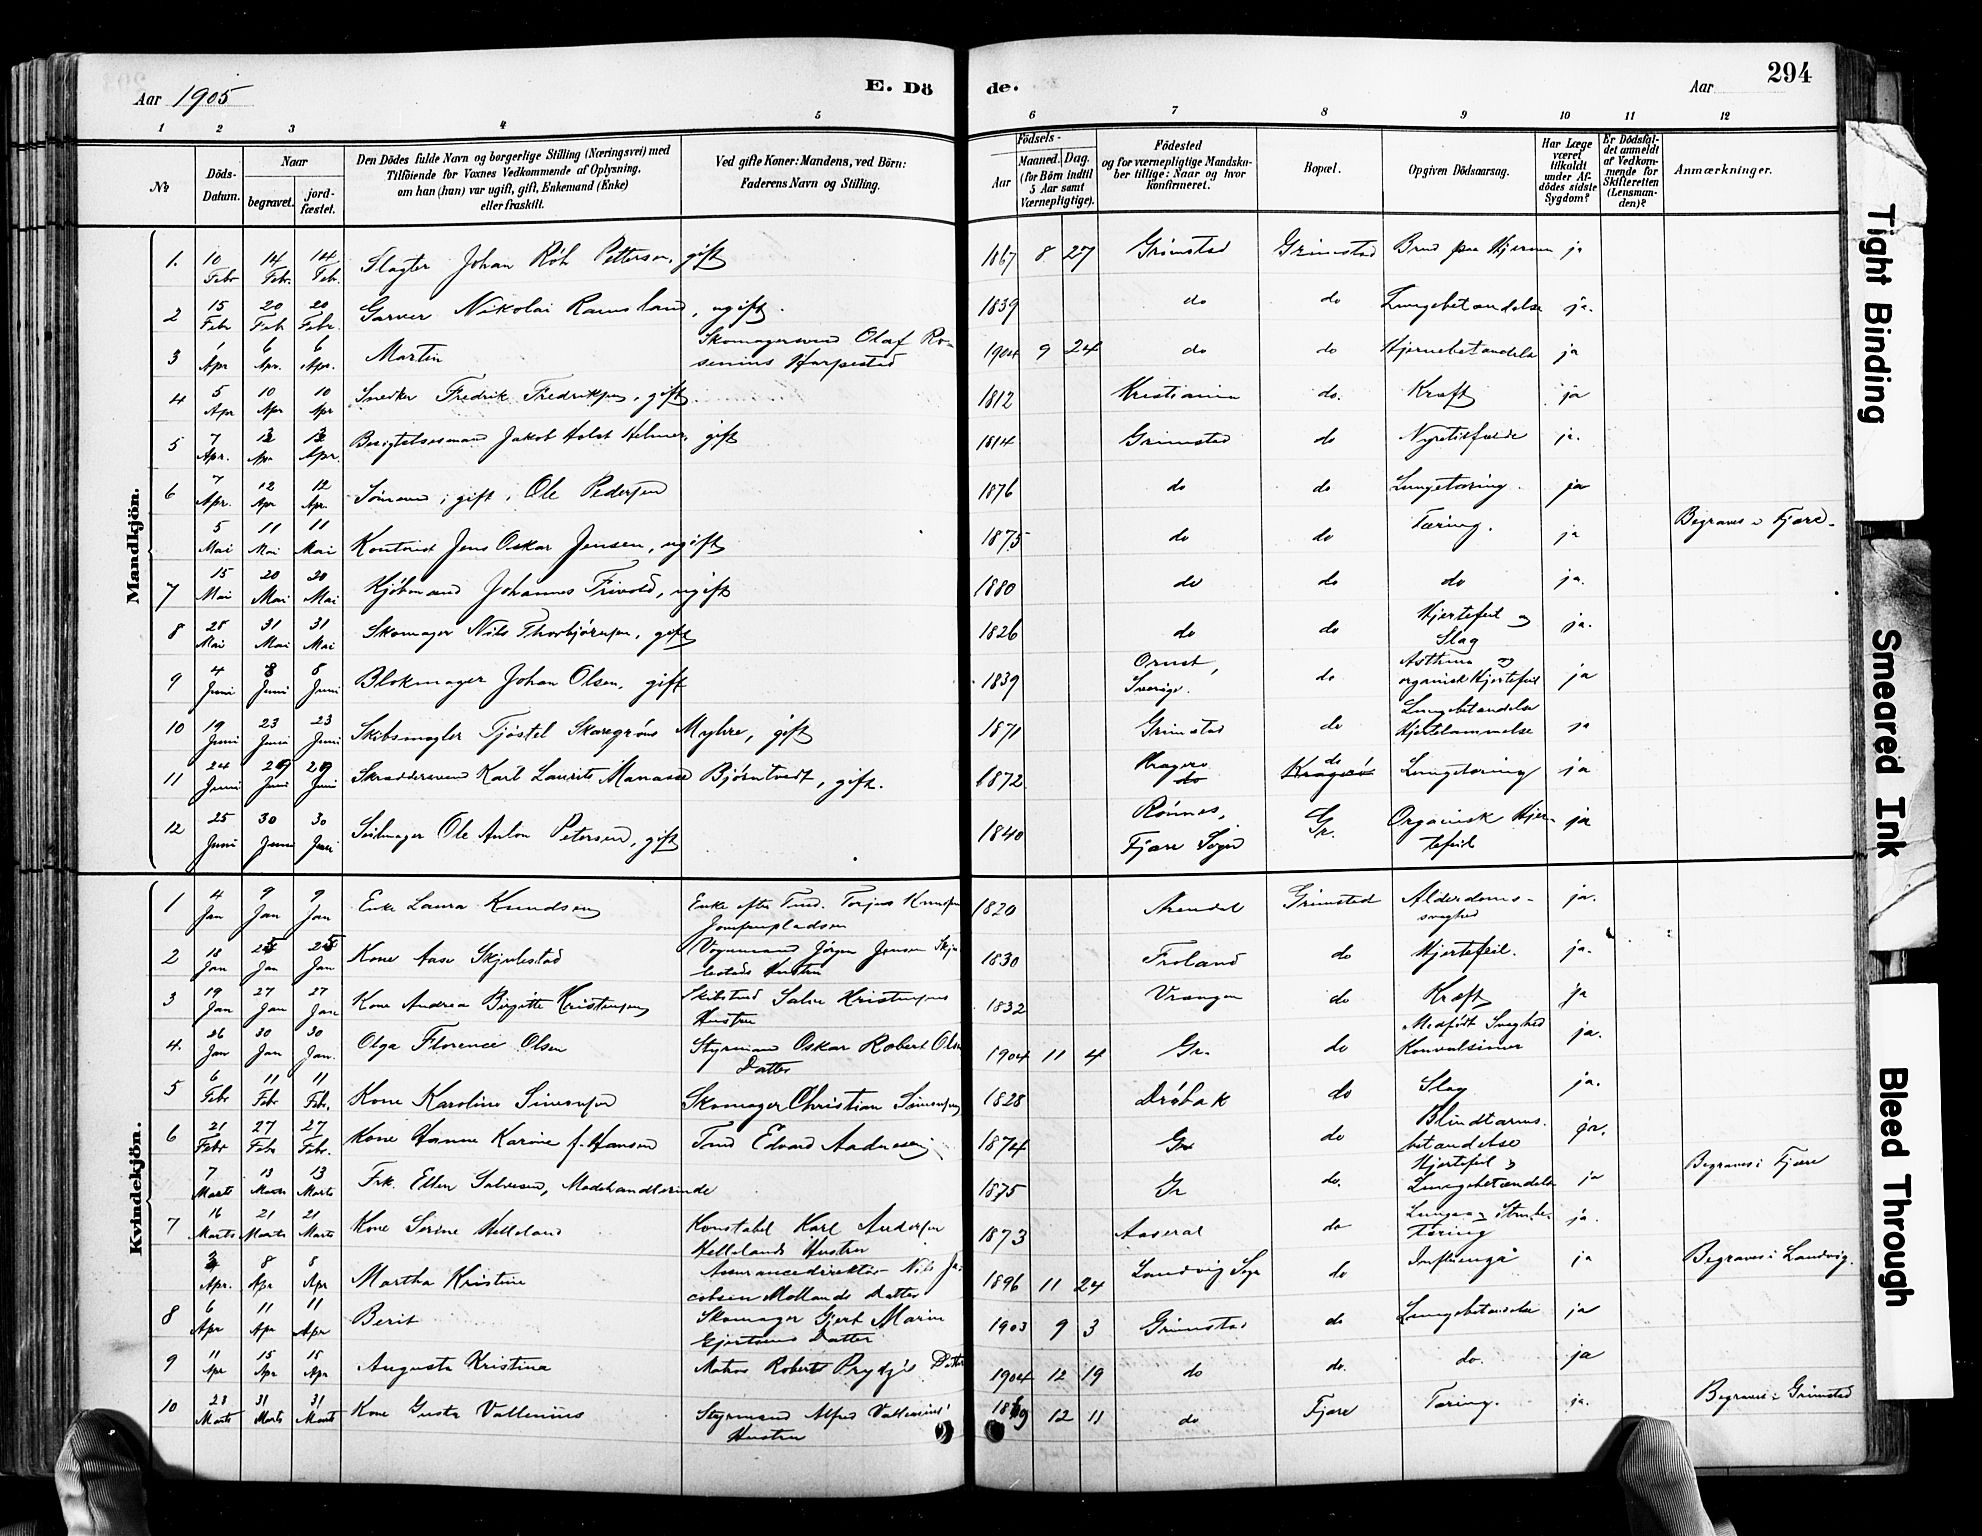 294
Aar 1905
E. Dö
de.
Aar
1 2 3 4 5 6 7 8 9 10 11 12
No
Döds-
Datum.
Naar
begravet.
jord-
fæstet.
Den Dödes fulde Navn og borgerlige Stilling (Næringsvei) med
Tilföiende for Voxnes Vedkommende af Oplysning,
om han (hun) var ugift, gift, Enkemand (Enke)
eller fraskilt.
Ved gifte Koner: Mandens, ved Börn:
Faderens Navn og Stilling.
Födsels-
Aar
Maaned. Dag.
(for Börn indtil
5 Aar samt
Værnepligtige).
Födested
og for værnepligtige Mandska-
ber tillige: Naar og hvor
konfirmeret.
Bopæl.
Opgiven Dödsaarsag.
Har Læge
været
tilkaldt
under Af-
dödes sidste
Sygdom?
Er Dödsfal-
det anmeldt
af Vedkom-
mende for
Skifteretten
(Lensman-
den)?
Anmærkninger.
Mandkjön.
1. 10 Febr 14 Febr. 14 Feb. Slagter Johan Petterson, gift 1867 8 27 Grimstad Grimstad Brud paa Hjernen ja
2 15 Febr 20 Feb 20 Febr. Garver Nikolai Ramsland, ugift. 1839 do do Lungebetændelse ja.
3 1 Apr 6 Apr. 6 Apr. Martin Skomagersvend Olaf Ro-
senius Harpestad 1904 9 24 do do Hjernebetændelse ja
4 5 Apr 10 Apr 10 Apr Snedker Fredrik Fredriksen, gift 1812 Kristiania do. Kræft ja
5 7 Apr. Apr Apr. Jakob Holst gift 1814 Grimstad do ja.
6 7 Apr. 12 Apr 12 Apr. Sömand, gift, Ole Pedersen 1876 do do Lungetæring. ja
5 Mai 11 Mai 11 Mai Kontorist Jens Oskar Jensen, ugift 1875 do do Tæring. ja Begraves i Fjære.
7 15 Mai 20 Mai 20 Mai Kjöbmand Johannes Frivold, ugift 1880 do do do ja.
8 28 Mai 31 Mai 31 Mai Skomager Nils Thorbjörnsen, gift 1826 do do Hjertefeil og
Slag ja.
9 4 Juni 8 Juni 8 Juni Blokmager Johan Olsen, gift 1839 Orust,
Sverige. do Asthma og
organisk Hjertefeil ja
10 19 Juni 23 Juni 23 Juni Skibsmægler Tjöstel Skaregröns Myhre, gift 1871 Grimstad do Lungebetændelse
Hjertelammelse ja
11 24 Juni 29 Juni 29 Juni Skræddersvend Karl Laurits Manasse Björntvedt, gift. 1872 Kragerö
do do
Kragerö Lungetæring ja
12 25 Juni 30 Juni 30 Juni Seilmager Ole Anton Petersen, gift 1840 Rönnes,
Fjære Sogn Gr. Organisk Hjer-
tefeil ja
Kvindekjön.
1 4 Jan 9 Jan 9 Jan Enke Laura Knudsen Enke efter Tmd. Torjus Knudsen
Jomfrupladsen 1820 Arendal Grimstad Alderdoms-
svaghed ja.
2 18 Jan 25 Jan 25 Jan Kone Aase Skjulestad Vognmand Jörgen Jensen Skju-
lestads Hustru 1830 Froland do Hjertefeil. ja.
3 19 Jan 27 Jan 27 Jan Kone Andrea Birgitte Kristensen Skibstmd Salve Kristensens
Hustru 1832 Vrængen do Kræft ja
4. 26 Jan 30 Jan 30 Jan. Olga Florence Olsen Styrmand Oskar Robert Olsens
Datter 1904 11 4 Gr. do Medfödt Svaghed
Konvulsioner ja.
5 6 Febr 11 Febr 11 Feb. Kone Karoline Simonsen Skomager Christian Simonsen 1828 Dröbak do Slag ja.
6 21 Febr 27 Febr 27 Febr. Kone Hanne Karine f. Hansen Tmd Edvard Andersen 1874 Gr do Blindtarms-
betændelse ja.
7 Marts 13 Marts 13 Marts Frk. Ellen Salvesen, Modehandlerinde 1875 Gr do. Hjertefeil og
Lungebetændelse ja Begraves i Fjære
7 16 Marts 21 Marts 21 Marts Kone Serine Helleland Konstabel Karl Andersen
Hellelands Hustru 1873 Aaseral do Lunge og Strube-
tæring ja.
Apr. 8 Apr 8 Apr Martha Kristine Assurancedirektör Nils Ja-
cobsen Mollands Datter 1896 11 24 Landvig Sogn do Influenza ja Begraves i Landvig.
8 6 Apr 11 Apr 11 Apr Berit Skomager Gjert Marin
Gjertsens Datter 1903 9 3 Grimstad do Lungebetændelse ja
9 11 Apr 15 Apr 15 Apr Augusta Kristina Matros Robert Datter 1904 12 19 do do. do. ja
10 23 Marts 31 Marts 31 Marts Kone Gusta Vallenius Styrmand Alfred Vallenius'
Hustru 12 11 do Fjære Tæring. ja. Begraves i Grimstad
Tight Binding
Smeared Ink
Bleed Through